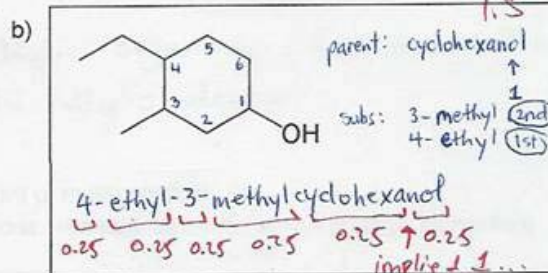 1.5
b)
parent: cyclohexanol
1
subs: 3-methyl 2nd
4-ethyl 1st
5
4
6
3
1
2
OH
4-ethyl-3-methylcyclohexanol
0.25 0.25 0.25 0.25 0.25 0.25
implied 1 ...